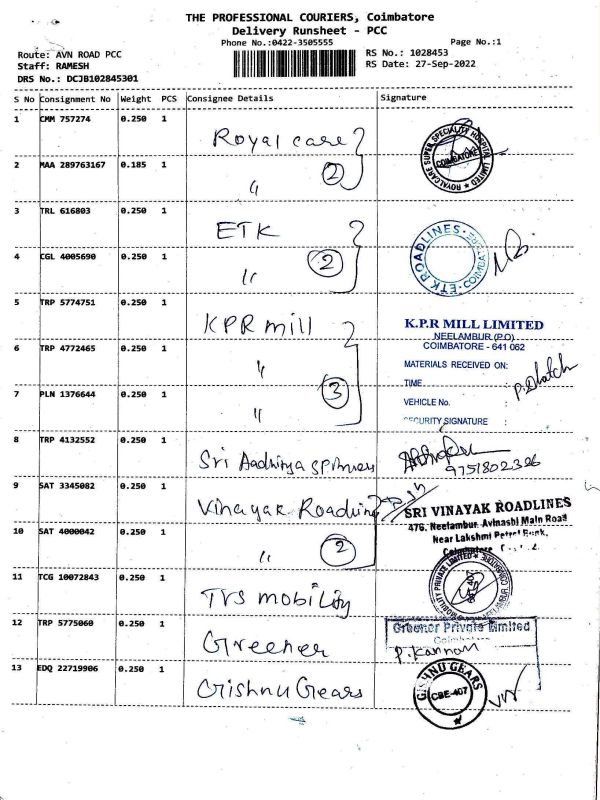 THE PROFESSIONAL COURIERS, Coimbatore
Delivery Runsheet - PCC
Phone No.:0422-3505555
Page No.:1
Route: AVN ROAD PCC
RS No.: 1028453
Staff: RAMESH
RS Date: 27-Sep-2022
DRS No.: DCJB102845301
S No Consignment No Weight PCS Consignee Details Signature
1 CMM 757274 0.250 1 Royal care
ROYALCARE SUPER SPECIALITY HOSPITAL LIMITED
COIMBATORE
2 MAA 289763167 0.185 1 " 2
3 TRL 616803 0.250 1 ETK
ETK ROADLINES
4 CGL 4005690 0.250 1 " 2
5 TRP 5774751 0.250 1 KPR mill
K.P.R MILL LIMITED
NEELAMBUR (P.O)
COIMBATORE - 641 062
6 TRP 4772465 0.250 1 "
MATERIALS RECEIVED ON:
TIME
7 PLN 1376644 0.250 1 " 3
VEHICLE No. :
SECURITY SIGNATURE :
8 TRP 4132552 0.250 1 Sri Aadhitya
9751802326
9 SAT 3345082 0.250 1 Vinayak Roadlines
SRI VINAYAK ROADLINES
476, Neelambur, Avinashi Main Road
Near Lakshmi Petrol Bunk,
10 SAT 4000042 0.250 1 " 2
11 TCG 10072843 0.250 1 TVS mobility
12 TRP 5775060 0.250 1 Greener
Greener Private Limited
Coimbatore
P. Kannan
13 EDQ 22719906 0.250 1 Crishnu Gears
CRISHNU GEARS
CBE-407